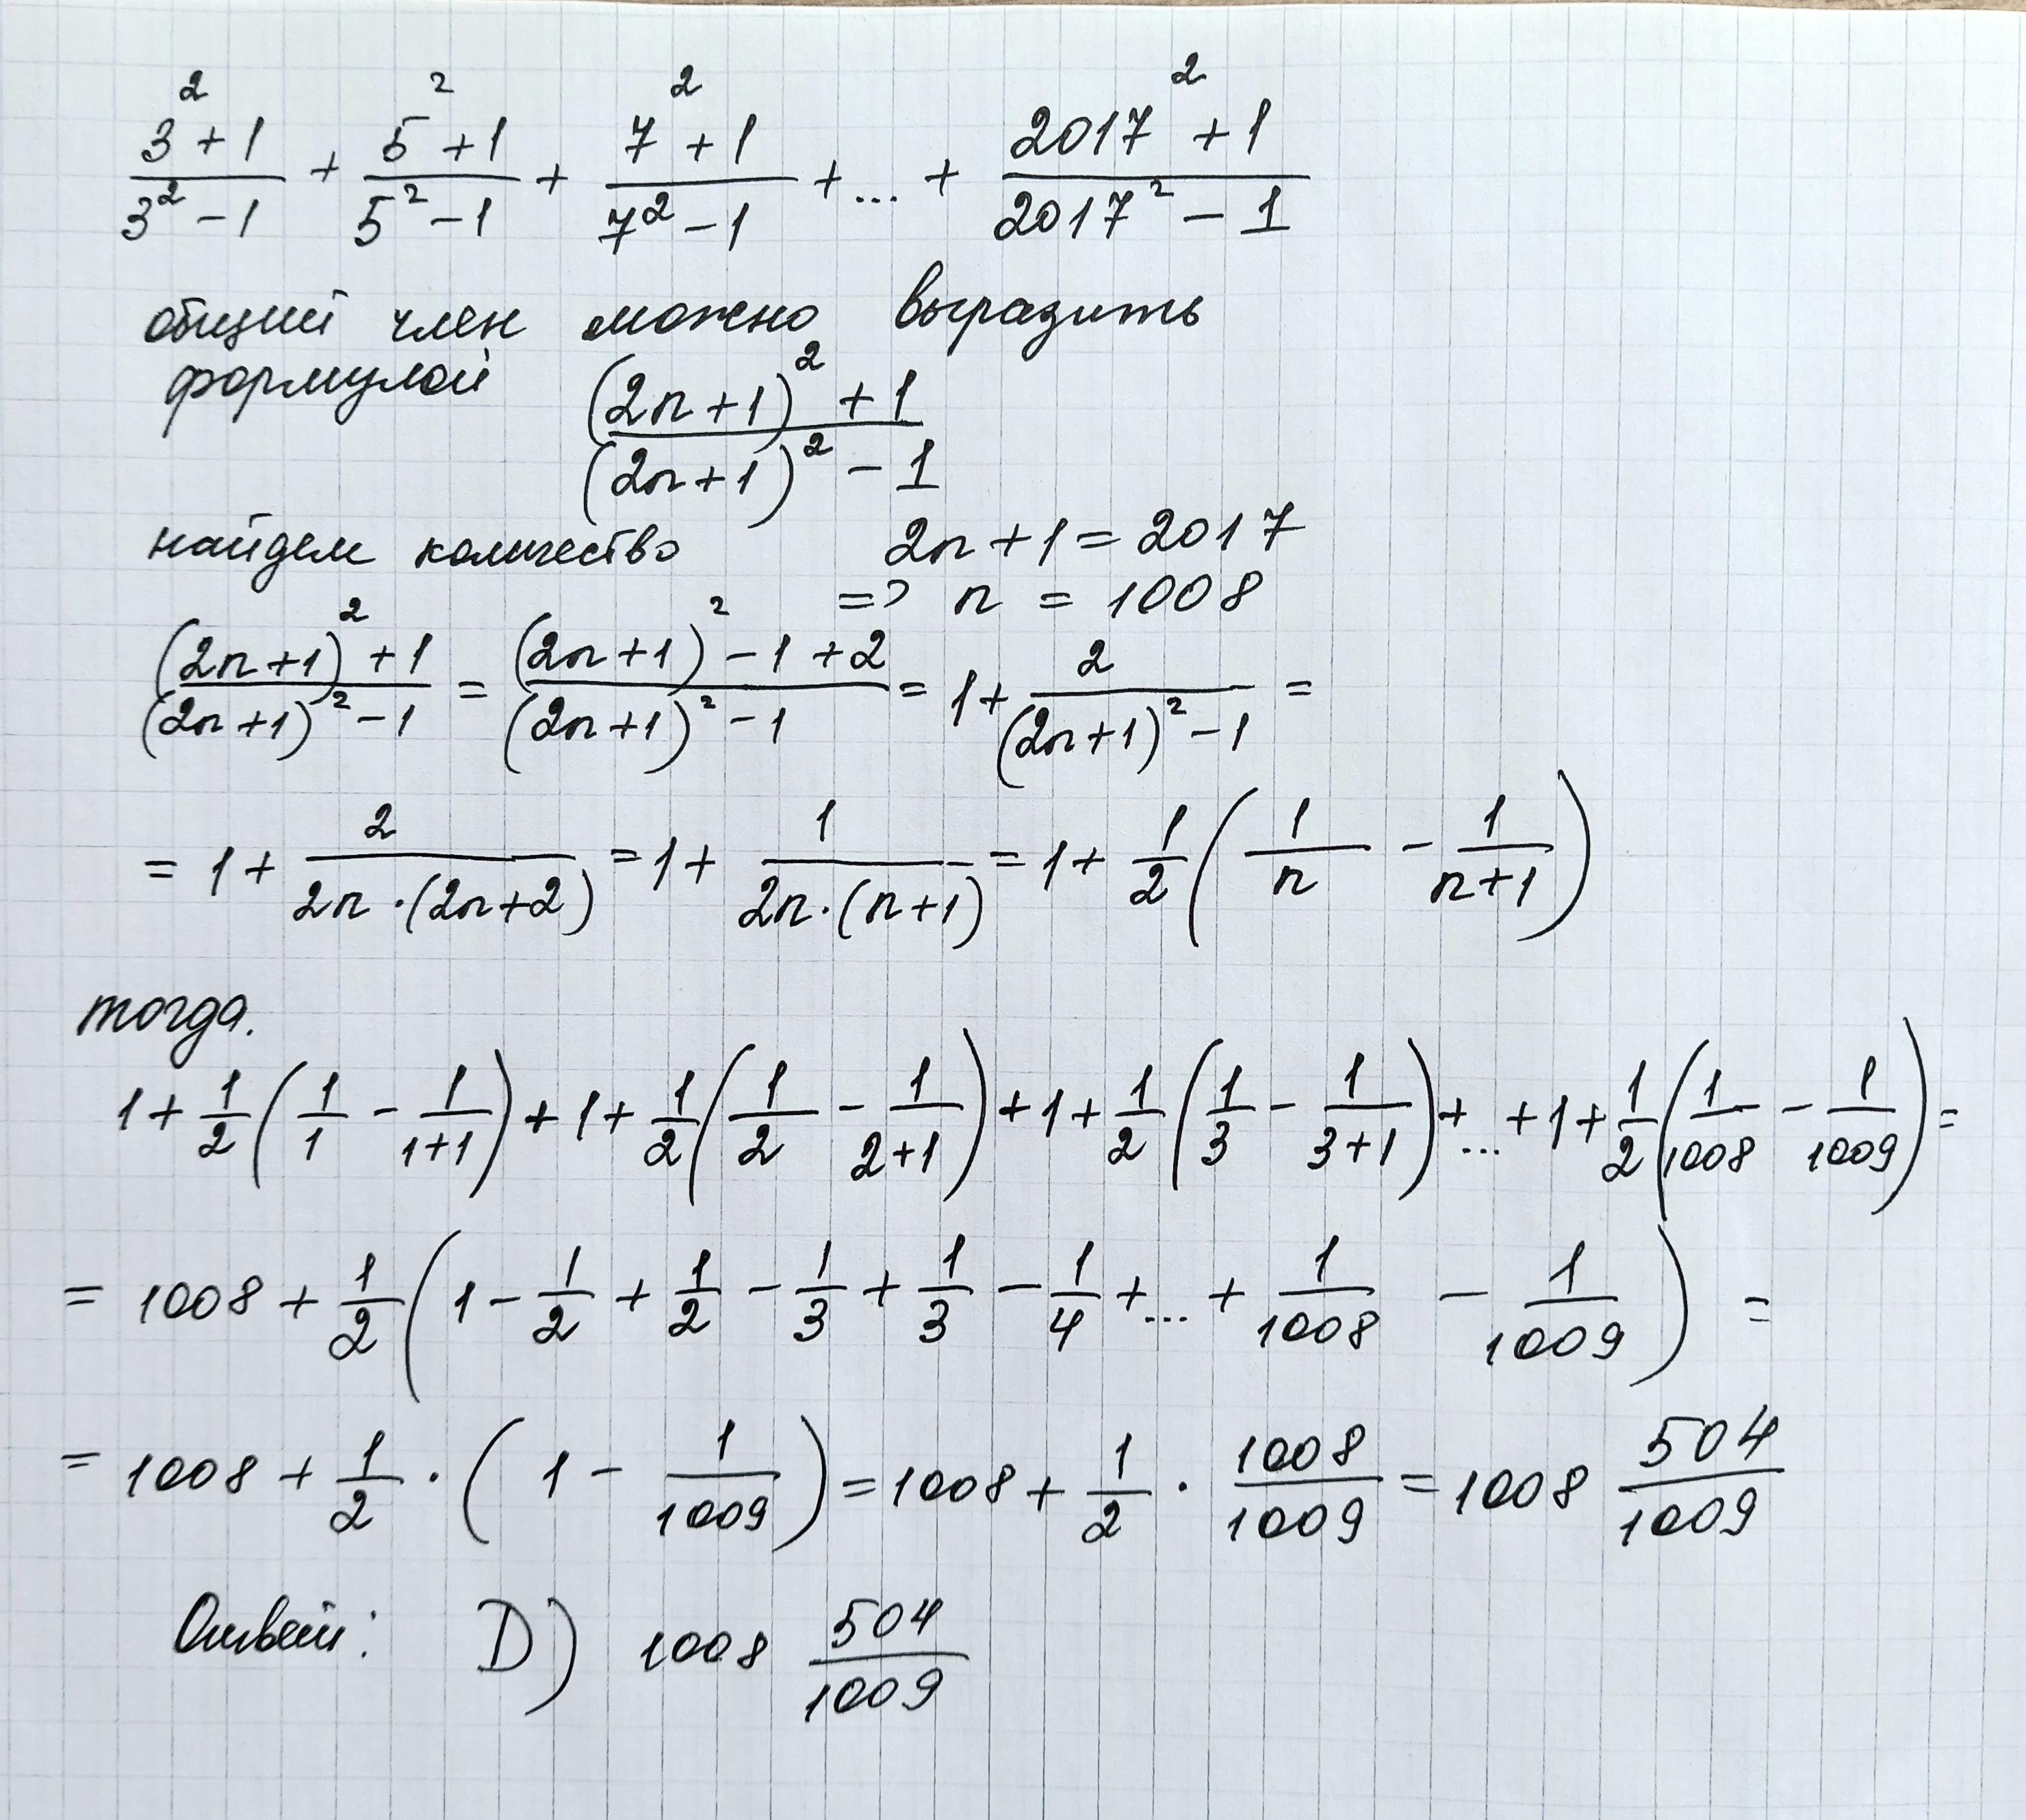 (3²+1)/(3²-1) + (5²+1)/(5²-1) + (7²+1)/(7²-1) +...+ (2017²+1)/(2017²-1)
общий член можно выразить
формулой ((2n+1)²+1)/((2n+1)²-1)
найдем количество 2n+1=2017
=> n = 1008
((2n+1)²+1)/((2n+1)²-1) = ((2n+1)²-1+2)/((2n+1)²-1) = 1+ 2/((2n+1)²-1) =
= 1+ 2/(2n·(2n+2)) = 1+ 1/(2n·(n+1)) = 1+ 1/2 (1/n - 1/(n+1))
тогда.
1+ 1/2 (1/1 - 1/(1+1)) +1+ 1/2 (1/2 - 1/(2+1)) +1+ 1/2 (1/3 - 1/(3+1)) +... +1+ 1/2 (1/1008 - 1/1009) =
= 1008 + 1/2 (1 - 1/2 + 1/2 - 1/3 + 1/3 - 1/4 +... + 1/1008 - 1/1009) =
= 1008 + 1/2 · (1 - 1/1009) = 1008 + 1/2 · 1008/1009 = 1008 504/1009
Ответ: D) 1008 504/1009